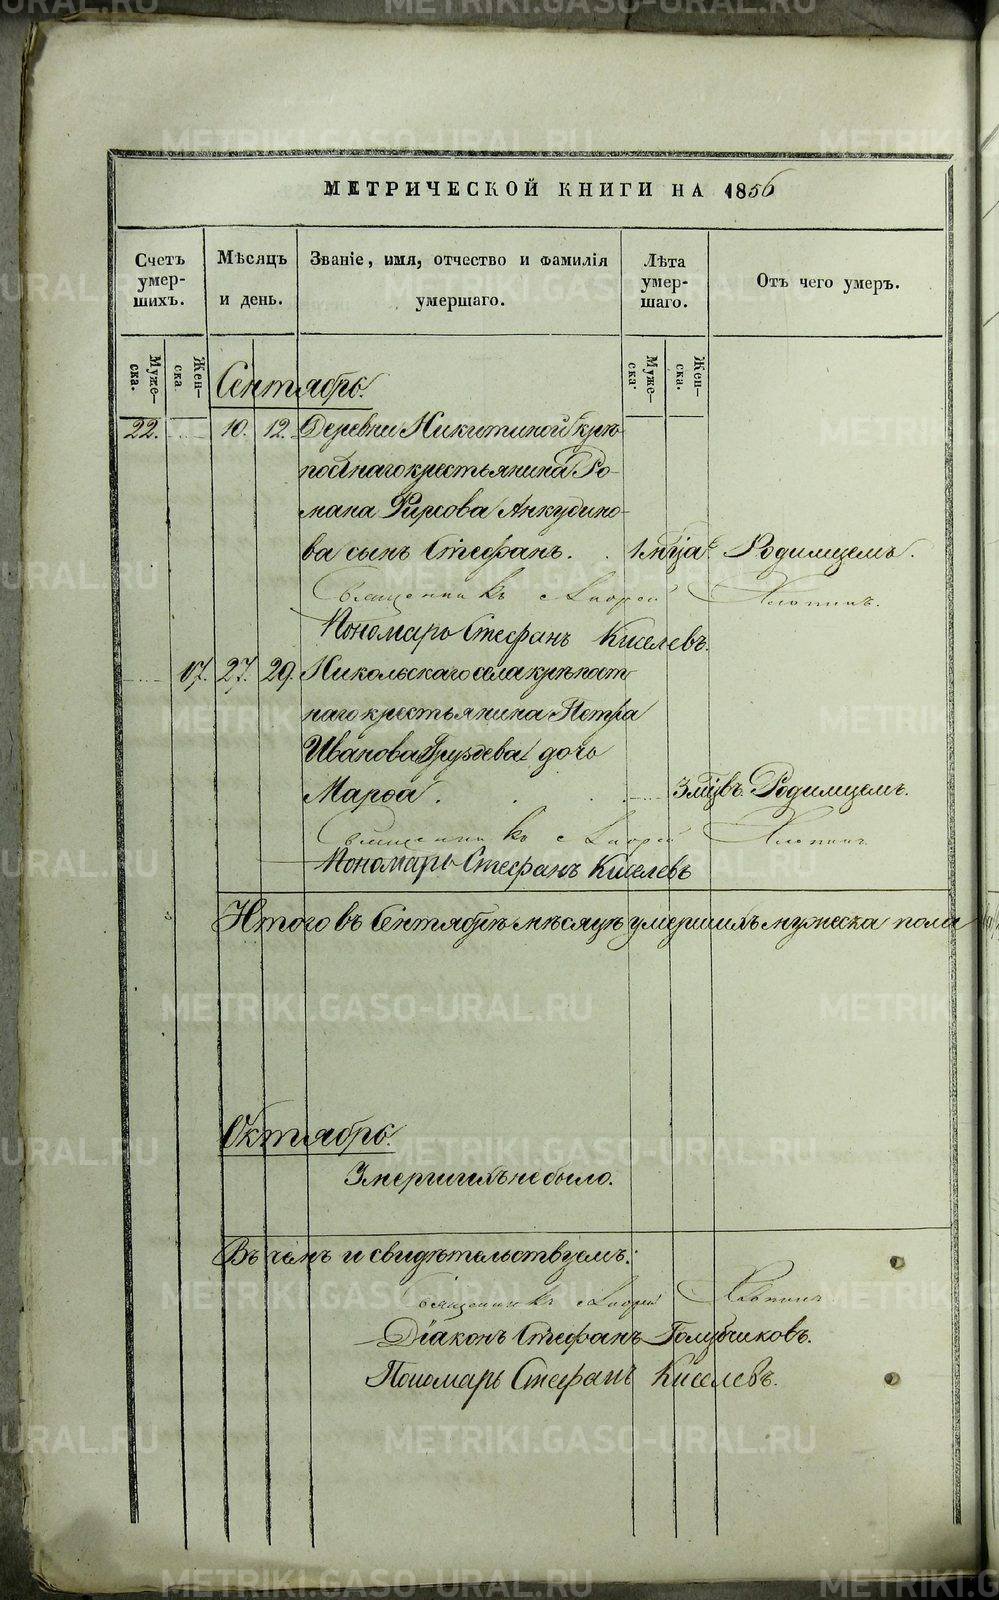 МЕТРИЧЕСКОЙ КНИГИ НА 1856
Счетъ умер- шихъ.
Мѣсяцъ и день.
Званіе, имя, отчество и фамилія умершаго.
Лѣта умер- шаго.
Отъ чего умеръ.
Муже- ска.
Жен- ска
Муже- ска.
Жен- ска.
Сентябрь.
22. 10. 12. Деревни Никитиной крѣ-
постнаго крестьянина Ро-
мана Фирсова Анкудино-
ва сынъ Стефанъ. 1 мца. Родимцемъ.
Священникъ Андрей
Пономарь Стефанъ Киселевъ.
17. 27. 29. Никольскаго села крѣпост
наго крестьянина Петра
Иванова Груздева дочь
Марѳа. 3 мцвъ. Родимцемъ.
Священникъ Андрей
Пономарь Стефанъ Киселевъ
Итого въ Сентябрѣ мѣсяцѣ умершихъ мужеска пола
Октябрь.
Умершихъ не было.
Въ чемъ и свидѣтельствуемъ:
Священникъ Андрей
Діаконъ Стефанъ Голубчиковъ.
Пономарь Стефанъ Киселевъ.
METRIKI.GASO-URAL.RU